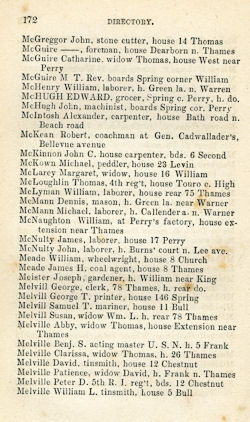 172 DIRECTORY.
McGreggor John, stone cutter, house 14 Thomas
McGuire ——, foreman, house Dearborn n. Thames
McGuire Catharine. widow Thomas, house West near
Perry
McGuire M T. Rev. boards Spring corner William
McHenry William, laborer, h. Green la. n. Warner
McHUGH EDWARD, grocer, Spring c. Perry, h. do.
McHugh John, machinist, boards Spring cor. Perry
McIntosh Alexander, carpenter, house Bath road n.
Beach road
McKean Robert, coachman at Gen. Cadwallader's,
Bellevue avenue
McKinnon John C. house carpenter, bds. 6 Second
McKown Michael, peddler, house 23 Levin
McLarey Margaret, widow, house 16 William
McLoughlin Thomas, 4th reg't, house Touro c. High
McLyman William, laborer, house rear 75 Thames
McMann Dennis, mason, h. Green la. near Warner
McMann Michael, laborer, h. Callender a. n. Warner
McNaughton William, at Perry's factory, house ex-
tension near Thames
McNulty James, laborer, house 17 Perry
McNulty John, laborer, h. Burns' court n. Lee ave.
Meade William, wheelwright, house 8 Church
Meade James H. coal agent, house 8 Thames
Meister Joseph, gardener, h. William near King
Melvill George, clerk, 78 Thames, h. rear do.
Melvill George T. printer, house 146 Spring
Melvill Samuel T. mariner, house 11 Bull
Melvill Susan, widow Wm. L. h. rear 78 Thames
Melville Abby, widow Thomas, house Extension near
Thames
Melville Benj. S. acting master U. S. N. h. 5 Frank
Melville Clarissa, widow Thomas, h. 26 Thames
Melville David, tinsmith, house 12 Chestnut
Melville Patience, widow David, h. Frank n. Thames
Melville Peter D. 5th R. I. reg't, bds. 12 Chestnut
Melville William L. tinsmith, house 5 Bull